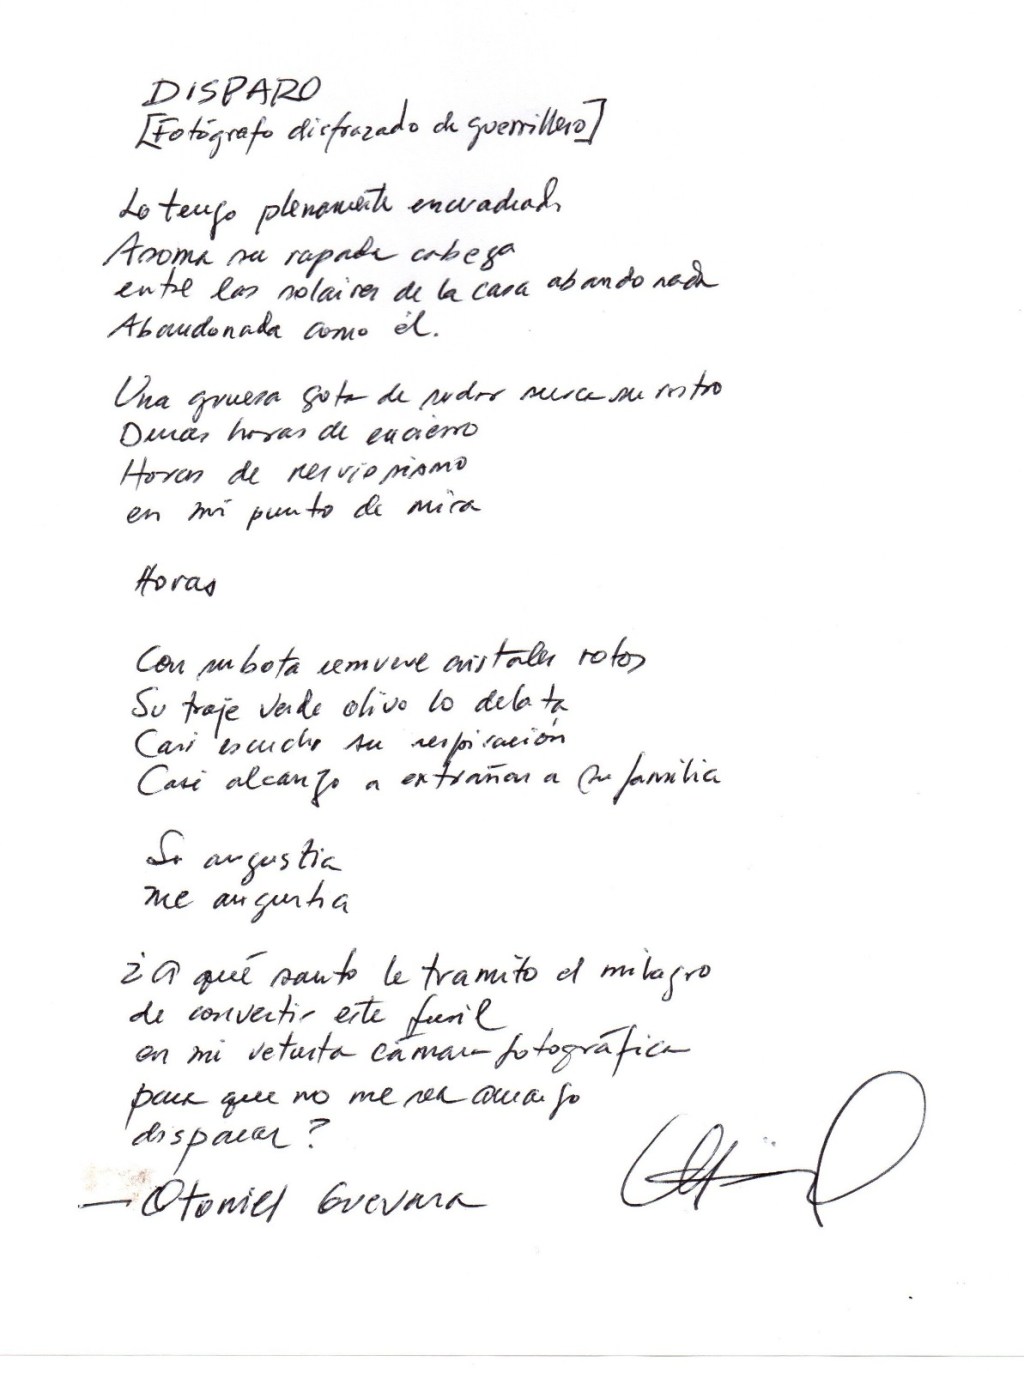 DISPARO
[Fotógrafo disfrazado de guerrillero]
Lo tengo plenamente encuadrado
Asoma su rapada cabeza
entre los solaires de la casa abandonada
Abandonada como él.
Una gruesa gota de sudor surca su rostro
Duras horas de encierro
Horas de nerviosismo
en mi punto de mira
Horas
Con su bota remueve cristales rotos
Su traje verde olivo lo delata
Casi escucho su respiración
Casi alcanzo a extrañar a su familia
Su angustia
me angustia
¿A qué santo le tramito el milagro
de convertir este fusil
en mi vetusta cámara fotográfica
para que no me sea amargo
disparar?
— Otoniel Guevara